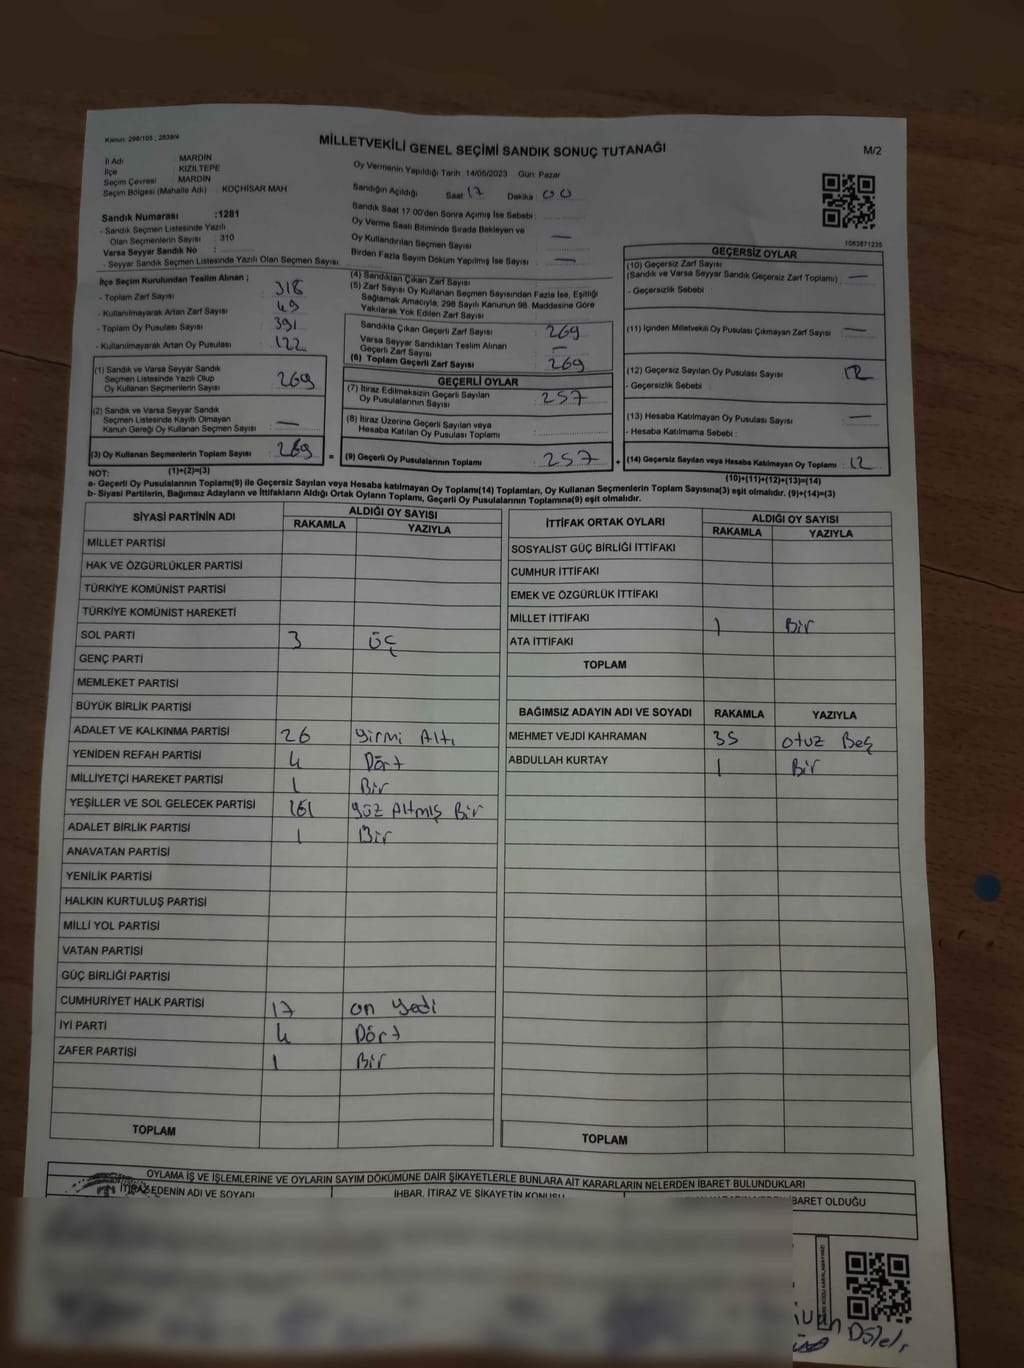 Kanun: 298/105 ; 2839/4
MİLLETVEKİLİ GENEL SEÇİMİ SANDIK SONUÇ TUTANAĞI
M/2
İl Adı : MARDİN
İlçe : KIZILTEPE
Seçim Çevresi : MARDİN
Seçim Bölgesi (Mahalle Adı) : KOÇHİSAR MAH
Oy Vermenin Yapıldığı Tarih : 14/05/2023 Gün: Pazar
Sandığın Açıldığı Saat : 17 Dakika : 00
Sandık Saat 17:00'den Sonra Açımış İse Sebebi :
Oy Verme Saati Bitiminde Sırada Bekleyen ve
Oy Kullandırılan Seçmen Sayısı : —
Birden Fazla Sayım Döküm Yapılmış İse Sayısı : —
1083871235
Sandık Numarası :1281
- Sandık Seçmen Listesinde Yazılı
Olan Seçmenlerin Sayısı : 310
Varsa Seyyar Sandık No :
- Seyyar Sandık Seçmen Listesinde Yazılı Olan Seçmen Sayısı :
İlçe Seçim Kurulundan Teslim Alınan ;
- Toplam Zarf Sayısı : 318
- Kullanılmayarak Artan Zarf Sayısı : 49
- Toplam Oy Pusulası Sayısı : 391
- Kullanılmayarak Artan Oy Pusulası : 122
(1) Sandık ve Varsa Seyyar Sandık
Seçmen Listesinde Yazılı Olup
Oy Kullanan Seçmenlerin Sayısı : 269
(2) Sandık ve Varsa Seyyar Sandık
Seçmen Listesinde Kayıtlı Olmayan
Kanun Gereği Oy Kullanan Seçmen Sayısı : —
(3) Oy Kullanan Seçmenlerin Toplam Sayısı : 269
(1)+(2)=(3)
(4) Sandıktan Çıkan Zarf Sayısı :
(5) Zarf Sayısı Oy Kullanan Seçmen Sayısından Fazla İse, Eşitliği
Sağlamak Amacıyla, 298 Sayılı Kanunun 98. Maddesine Göre
Yakılarak Yok Edilen Zarf Sayısı :
Sandıkta Çıkan Geçerli Zarf Sayısı : 269
Varsa Seyyar Sandıktan Teslim Alınan
Geçerli Zarf Sayısı : —
(6) Toplam Geçerli Zarf Sayısı : 269
GEÇERLİ OYLAR
(7) İtiraz Edilmeksizin Geçerli Sayılan
Oy Pusulalarının Sayısı : 257
(8) İtiraz Üzerine Geçerli Sayılan veya
Hesaba Katılan Oy Pusulası Toplamı :
= (9) Geçerli Oy Pusulalarının Toplamı : 257
GEÇERSİZ OYLAR
(10) Geçersiz Zarf Sayısı
(Sandık ve Varsa Seyyar Sandık Geçersiz Zarf Toplamı) : —
- Geçersizlik Sebebi :
(11) İçinden Milletvekili Oy Pusulası Çıkmayan Zarf Sayısı : —
(12) Geçersiz Sayılan Oy Pusulası Sayısı : 12
- Geçersizlik Sebebi :
(13) Hesaba Katılmayan Oy Pusulası Sayısı : —
- Hesaba Katılmama Sebebi :
+ (14) Geçersiz Sayılan veya Hesaba Katılmayan Oy Toplamı : 12
(10)+(11)+(12)+(13)=(14)
NOT:
a- Geçerli Oy Pusulaları Toplamı(9) ile Geçersiz Sayılan veya Hesaba katılmayan Oy Toplamı(14) Toplamları, Oy Kullanan Seçmenlerin Toplam Sayısına(3) eşit olmalıdır. (9)+(14)=(3)
b- Siyasi Partilerin, Bağımsız Adayların ve İttifakların Aldığı Ortak Oyların Toplamı, Geçerli Oy Pusulalarının Toplamına(9) eşit olmalıdır.
SİYASİ PARTİNİN ADI ALDIĞI OY SAYISI
RAKAMLA YAZIYLA
MİLLET PARTİSİ
HAK VE ÖZGÜRLÜKLER PARTİSİ
TÜRKİYE KOMÜNİST PARTİSİ
TÜRKİYE KOMÜNİST HAREKETİ
SOL PARTİ 3 üç
GENÇ PARTİ
MEMLEKET PARTİSİ
BÜYÜK BİRLİK PARTİSİ
ADALET VE KALKINMA PARTİSİ 26 yirmi Altı
YENİDEN REFAH PARTİSİ 4 Dört
MİLLİYETÇİ HAREKET PARTİSİ 1 Bir
YEŞİLLER VE SOL GELECEK PARTİSİ 161 yüz Altmış Bir
ADALET BİRLİK PARTİSİ 1 Bir
ANAVATAN PARTİSİ
YENİLİK PARTİSİ
HALKIN KURTULUŞ PARTİSİ
MİLLİ YOL PARTİSİ
VATAN PARTİSİ
GÜÇ BİRLİĞİ PARTİSİ
CUMHURİYET HALK PARTİSİ 17 on yedi
İYİ PARTİ 4 Dört
ZAFER PARTİSİ 1 Bir
TOPLAM
İTTİFAK ORTAK OYLARI ALDIĞI OY SAYISI
RAKAMLA YAZIYLA
SOSYALİST GÜÇ BİRLİĞİ İTTİFAKI
CUMHUR İTTİFAKI
EMEK VE ÖZGÜRLÜK İTTİFAKI
MİLLET İTTİFAKI 1 Bir
ATA İTTİFAKI
TOPLAM
BAĞIMSIZ ADAYIN ADI VE SOYADI RAKAMLA YAZIYLA
MEHMET VEJDİ KAHRAMAN 35 otuz Beş
ABDULLAH KURTAY 1 Bir
TOPLAM
OYLAMA İŞ VE İŞLEMLERİNE VE OYLARIN SAYIM DÖKÜMÜNE DAİR ŞİKAYETLERLE BUNLARA AİT KARARLARIN NELERDEN İBARET BULUNDUKLARI
İTİRAZ EDENİN ADI VE SOYADI İHBAR, İTİRAZ VE ŞİKAYETİN KONUSU İBARET OLDUĞU